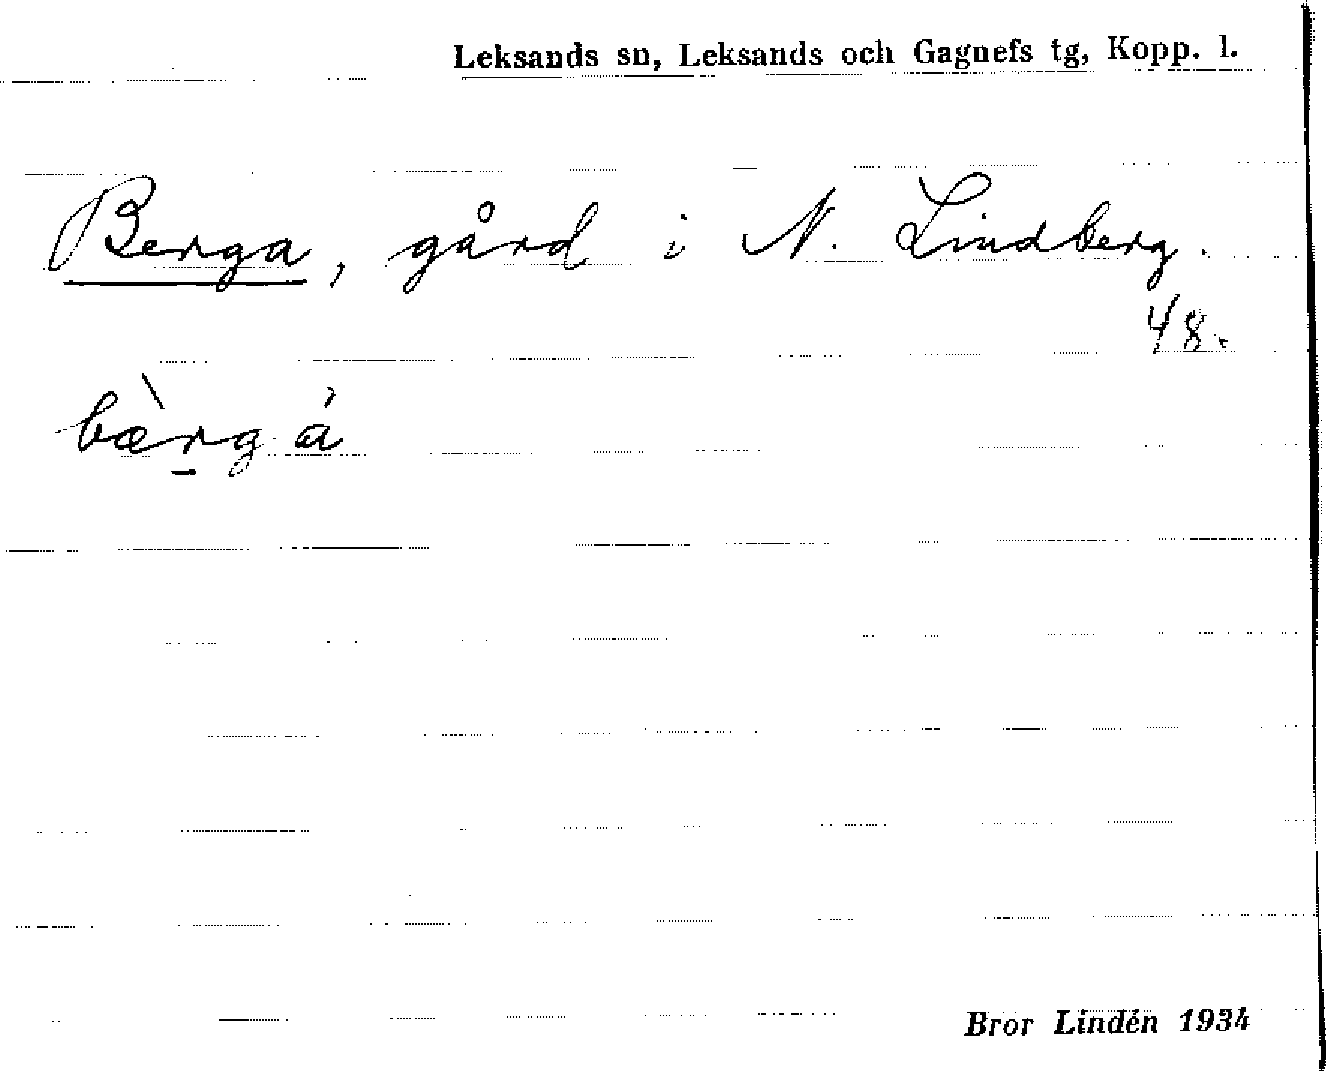 Leksands sn, Leksands och Gagnefs tg, Kopp. l.
Berga, gård i N. Lindberg.
48.
bæ̀rg á
Bror Lindén 1934